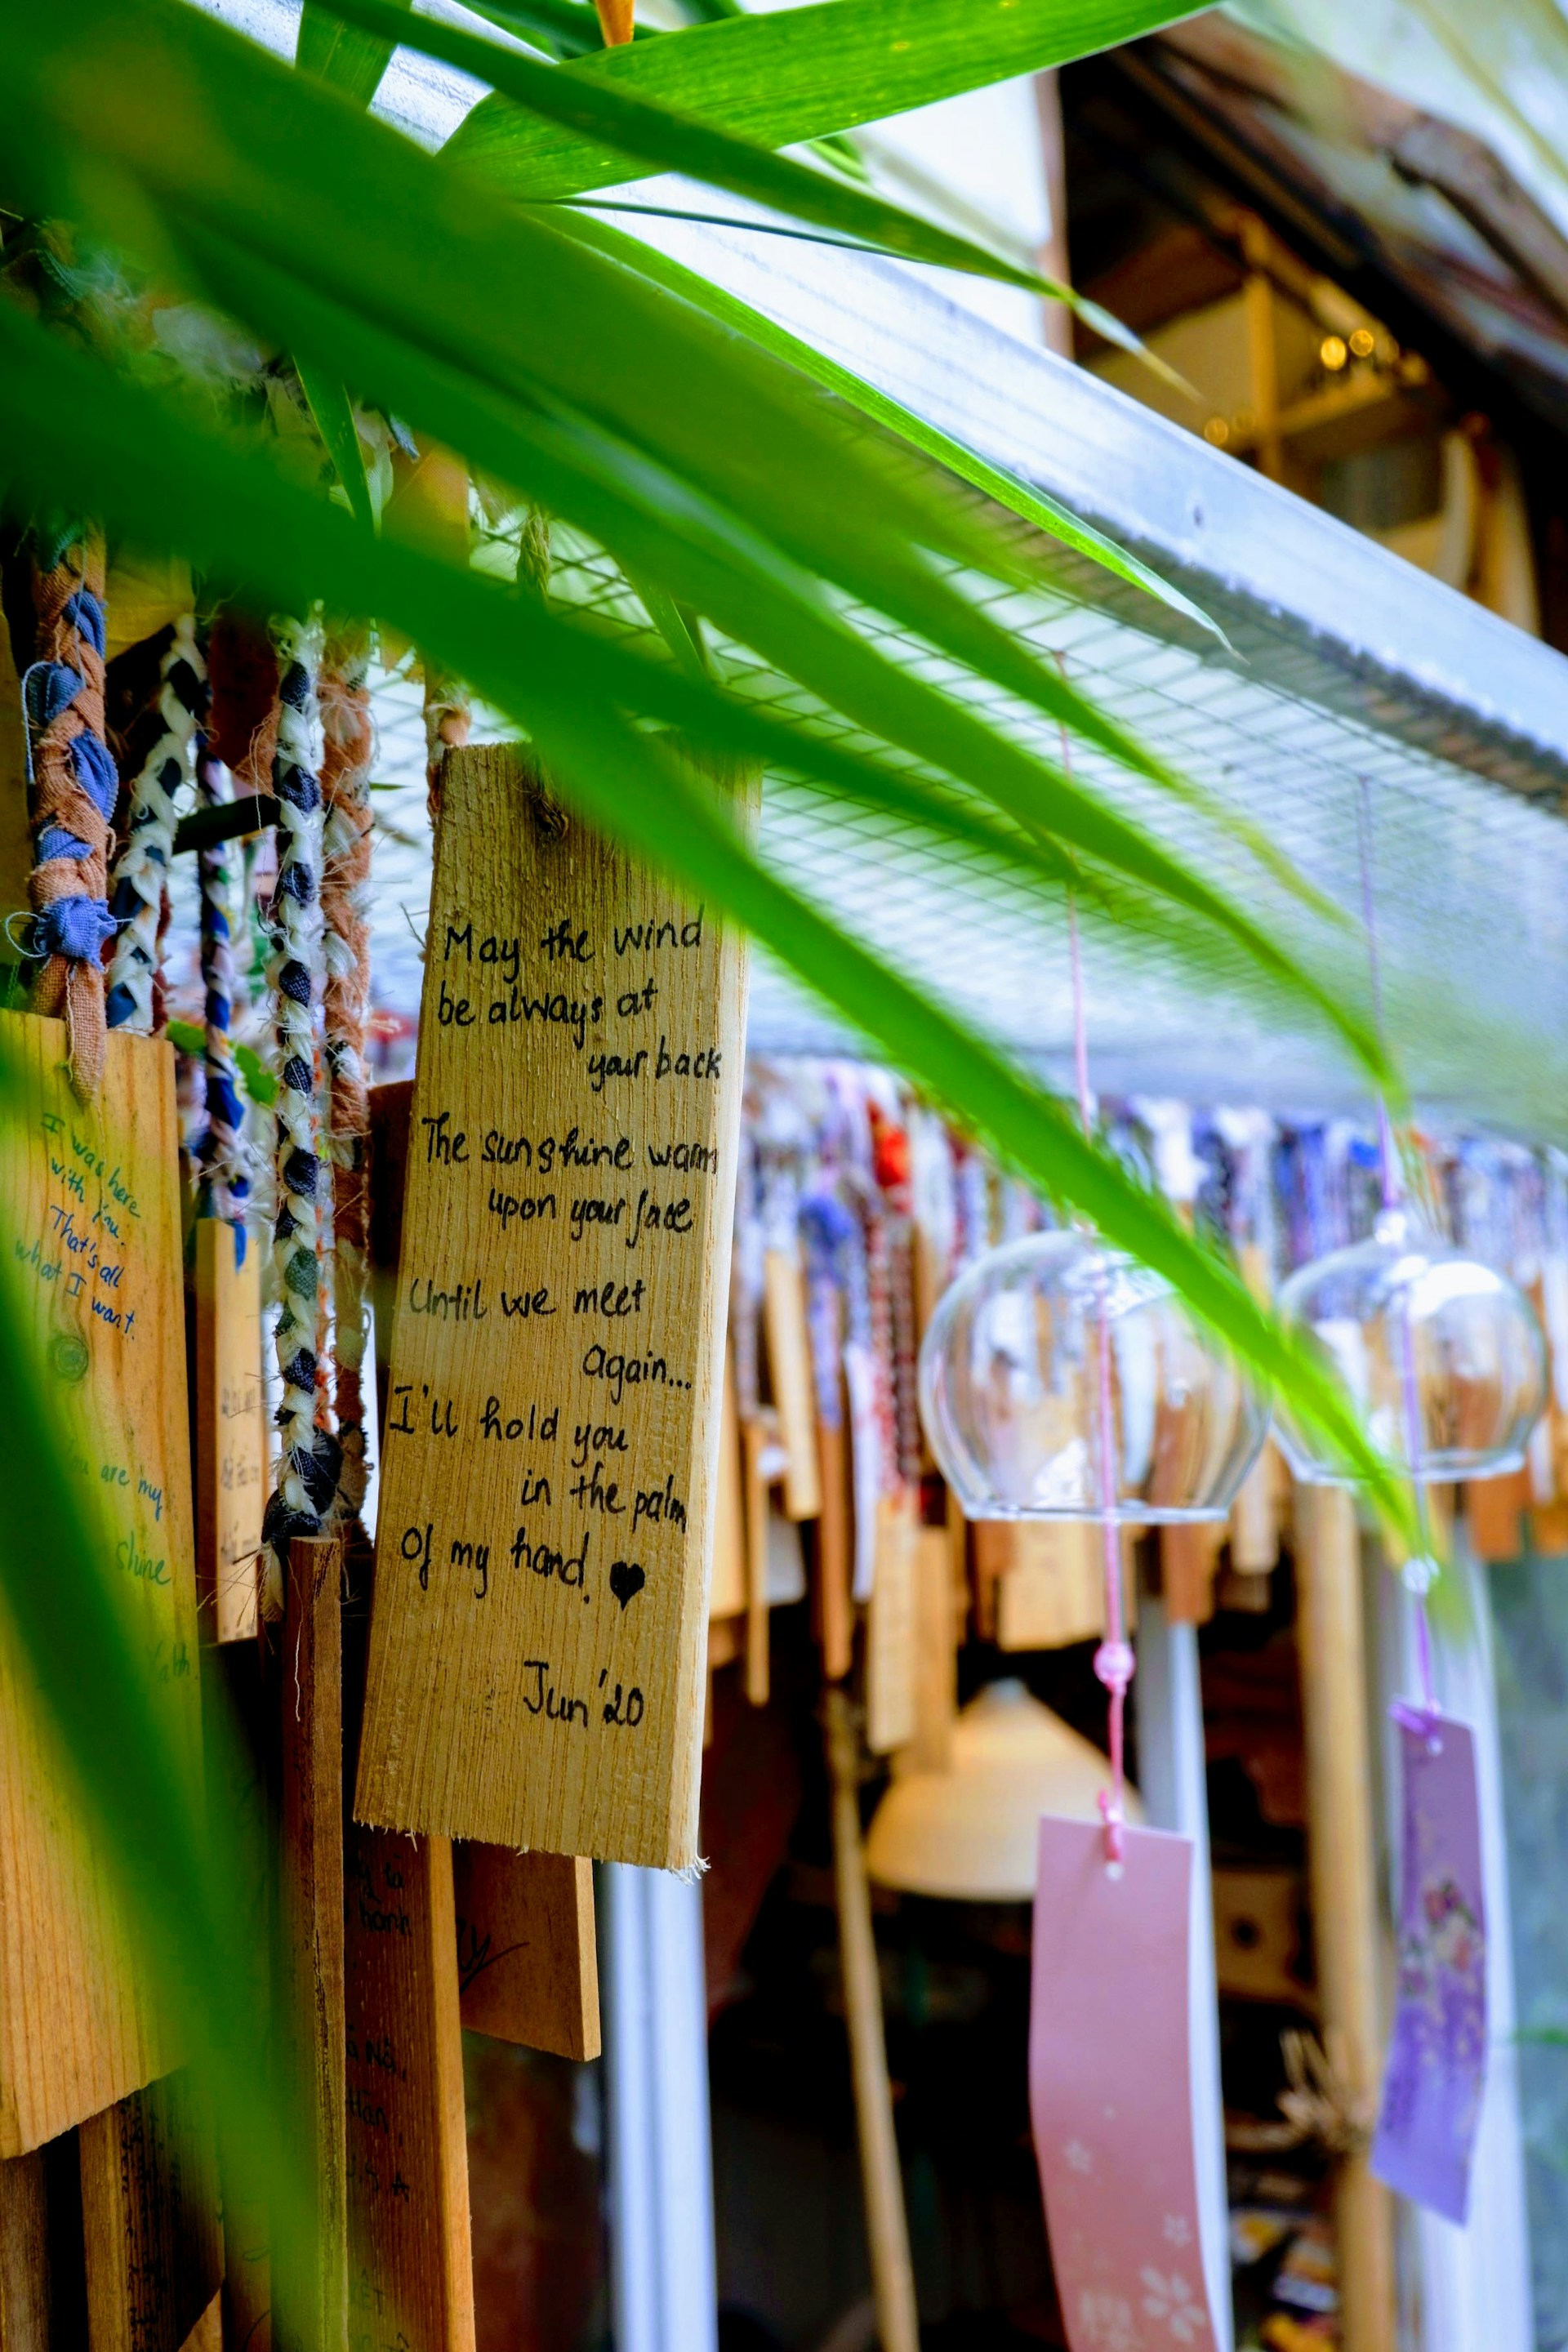 May the wind
be always at
your back
The sunshine warm
upon your face
Until we meet
again...
I'll hold you
in the palm
Of my hand! ♥
Jun'20
I was here
with you.
That's all
what I want.
are my
shine